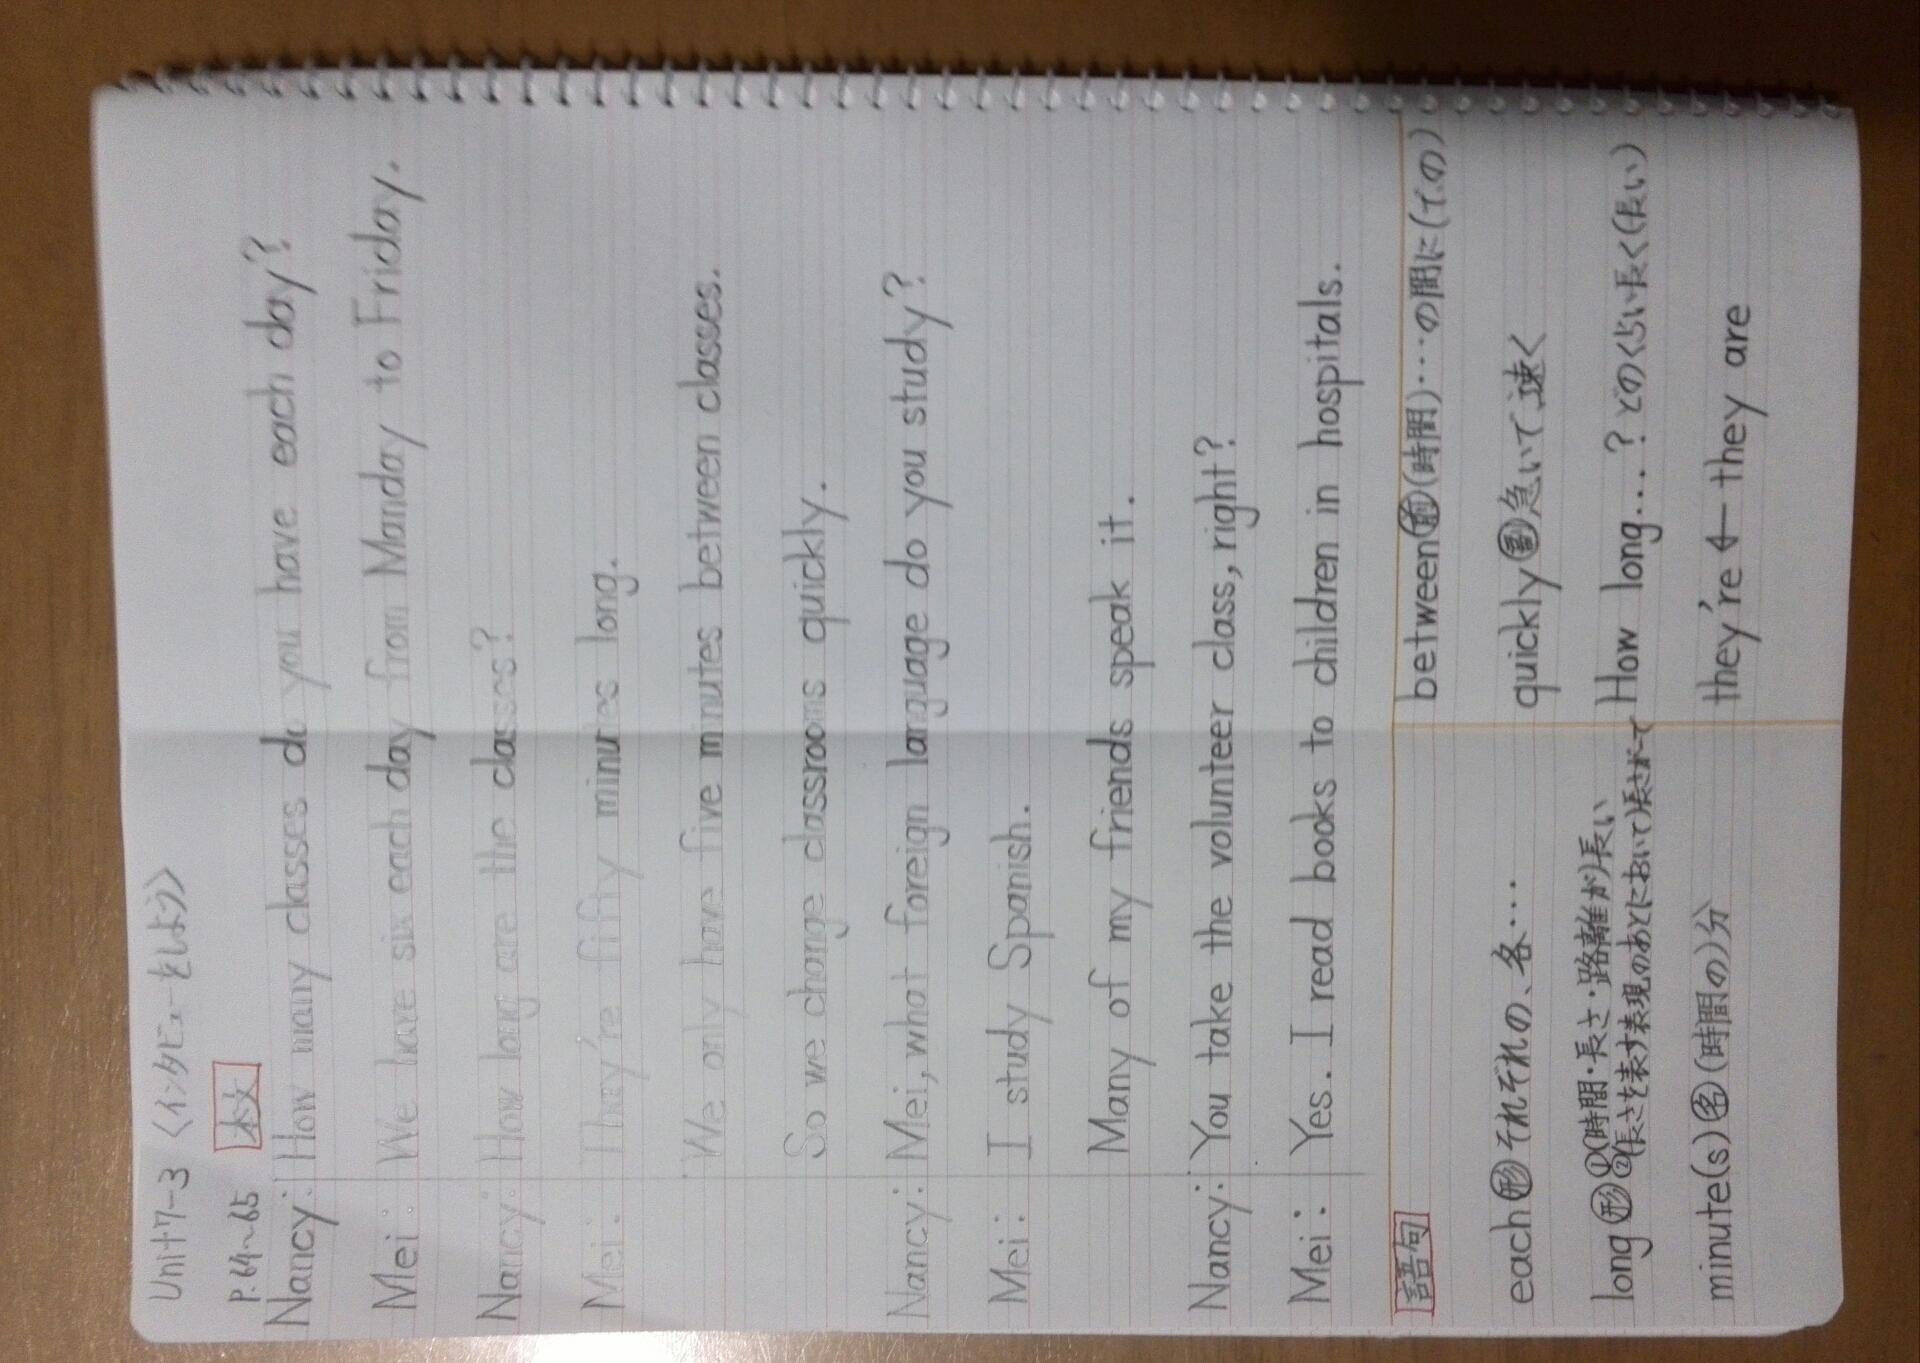 Unit7-3 〈インタビューをしよう〉
P.64~65 本文
Nancy: How many classes do you have each day?
Mei: We have six each day from Manday to Friday.
Nancy: How long are the classes?
Mei: They're fifty minutes long.
We only have five minutes between classes.
So we change classrooms quickly.
Nancy: Mei, what foreign language do you study?
Mei: I study Spanish.
Many of my friends speak it.
Nancy: You take the volunteer class, right?
Mei: Yes. I read books to children in hospitals.
語句
between 前 (時間)…の間に(での)
each 形 それぞれの、各…
quickly 副 急いで速く
long 形 ①(時間・長さ・距離が)長い
②(長さを表す表現のあとにおいて)長さが…で
How long…? どのくらい長く(長い)
minute(s) 名 (時間の)分
they're ← they are